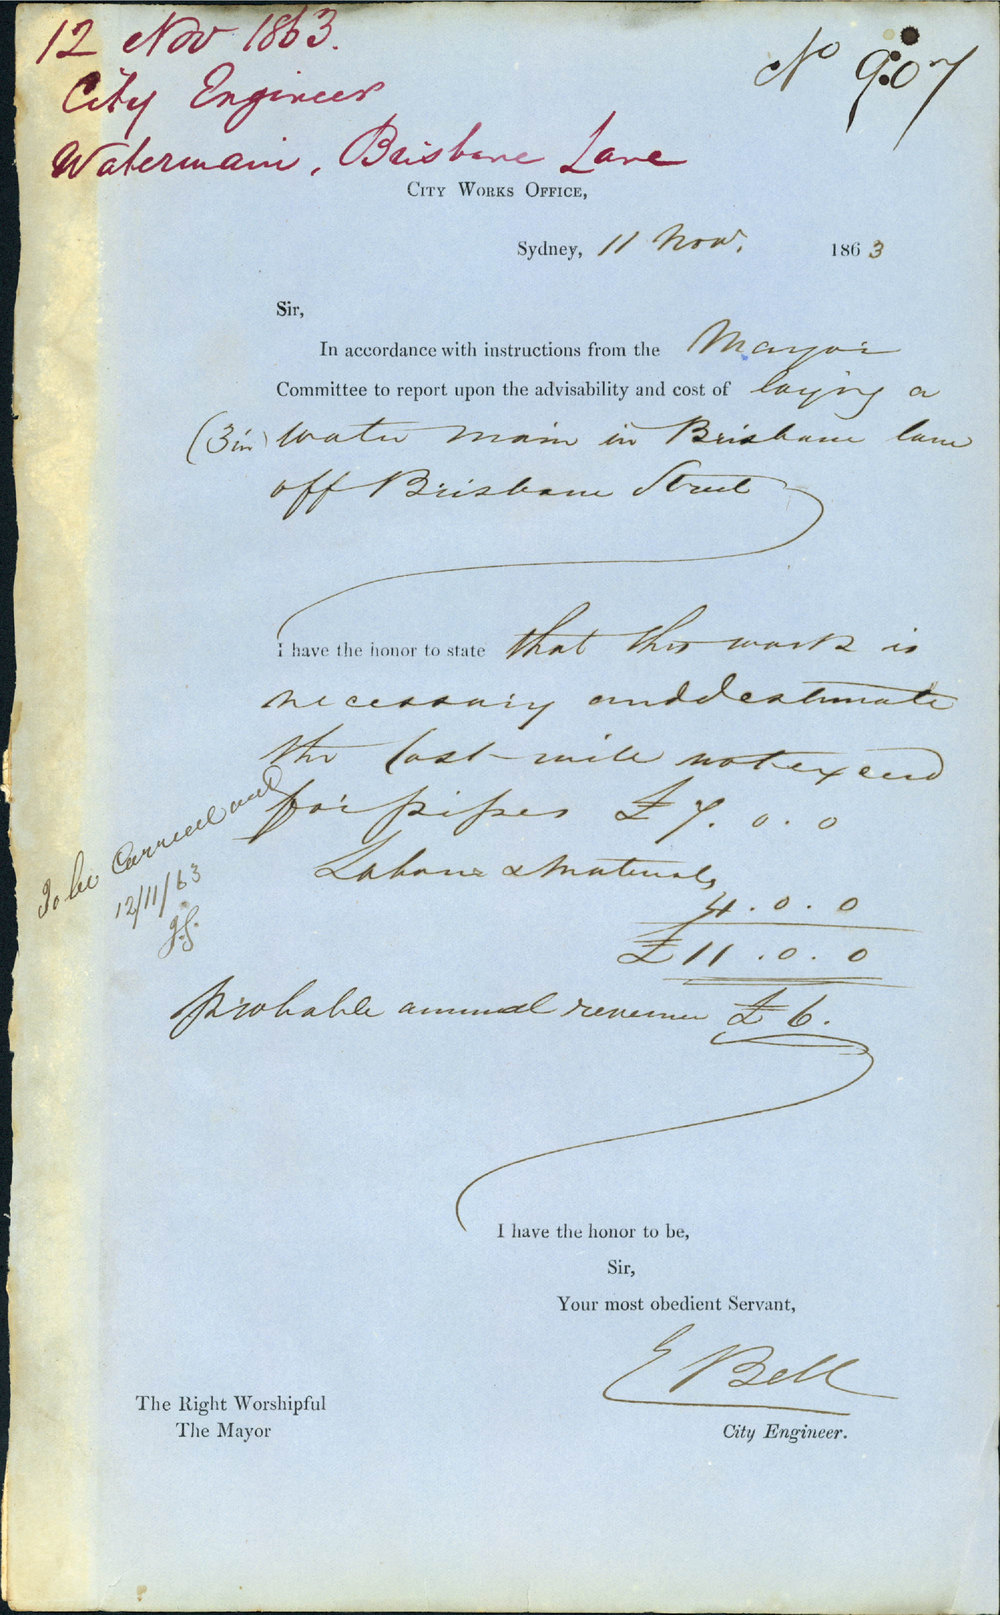 12 Nov 1863.
No 907
City Engineer
Watermain, Brisbane Lane
City Works Office,
Sydney, 11 Nov. 1863
Sir,
In accordance with instructions from the Mayor
Committee to report upon the advisability and cost of laying a
(3in) water main in Brisbane lane
off Brisbane Street
I have the honor to state that this work is
necessary and estimate
the Cost will not exceed
for pipes £7.0.0
Labour & Materials
4.0.0
£11.0.0
probable annual revenue £6.
To be Carried out
12/11/63
I have the honor to be,
Sir,
Your most obedient Servant,
E Bell
City Engineer.
The Right Worshipful
The Mayor